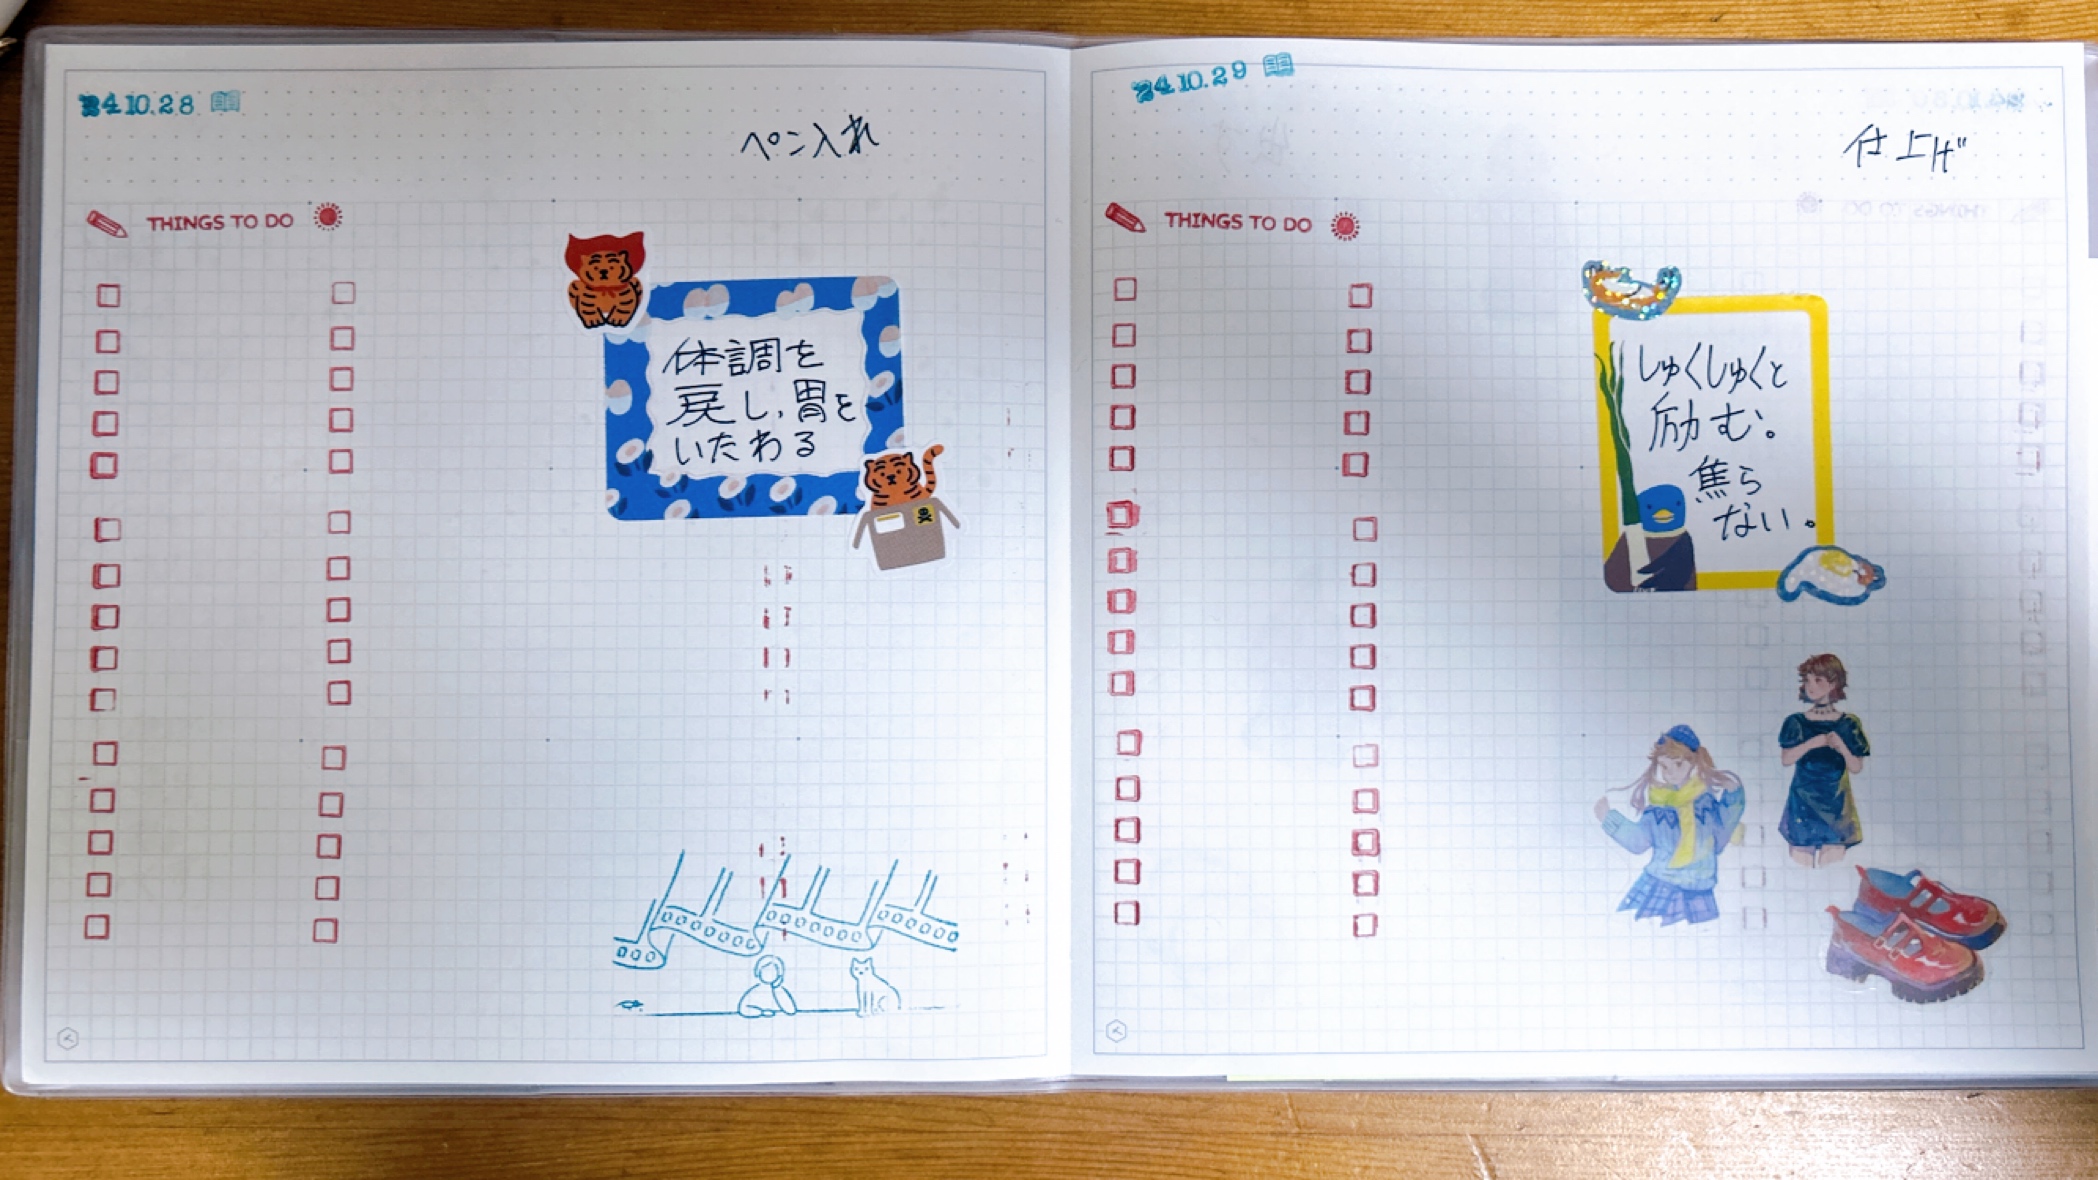 24.10.28
ペン入れ
THINGS TO DO
体調を
戻し、胃を
いたわる
24.10.29
仕上げ
THINGS TO DO
しゅくしゅくと
励む。
焦ら
ない。